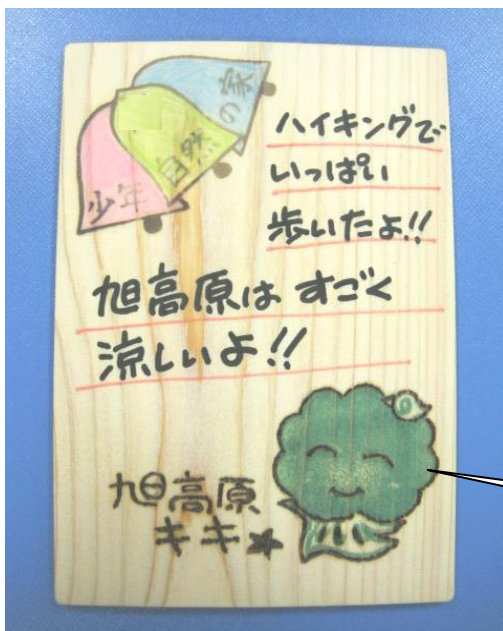 少年
自然
の家
ハイキングで
いっぱい
歩いたよ!!
旭高原は すごく
涼しいよ!!
旭高原
キキ★